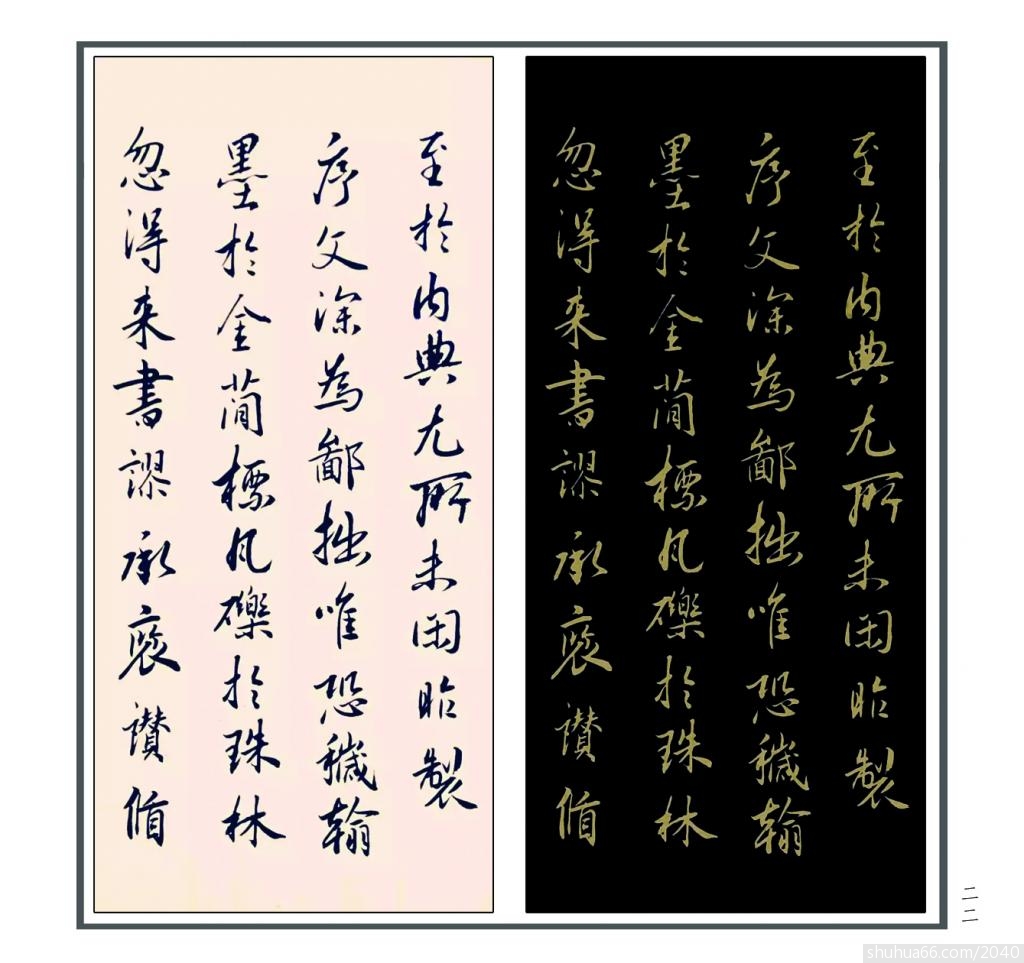 至於內典尤所未閑昨製
序文深為鄙拙唯恐穢翰
墨於金簡標瓦礫於珠林
忽得来書謬承褒讚循
至於內典尤所未閑昨製
序文深為鄙拙唯恐穢翰
墨於金簡標瓦礫於珠林
忽得来書謬承褒讚循
二二
shuhua66.com/2040